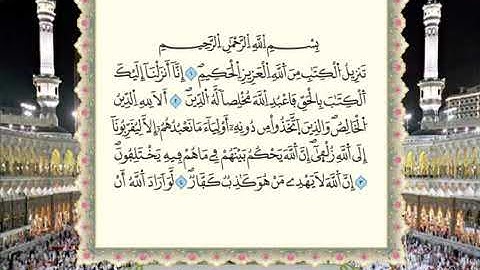 بِسْمِ اللَّهِ الرَّحْمَٰنِ الرَّحِيمِ
تَنزِيلُ الْكِتَابِ مِنَ اللَّهِ الْعَزِيزِ الْحَكِيمِ ۝١ إِنَّا أَنزَلْنَا إِلَيْكَ
الْكِتَابَ بِالْحَقِّ فَاعْبُدِ اللَّهَ مُخْلِصًا لَّهُ الدِّينَ ۝٢ أَلَا لِلَّهِ الدِّينُ
الْخَالِصُ وَالَّذِينَ اتَّخَذُوا مِن دُونِهِ أَوْلِيَاءَ مَا نَعْبُدُهُمْ إِلَّا لِيُقَرِّبُونَا
إِلَى اللَّهِ زُلْفَىٰ إِنَّ اللَّهَ يَحْكُمُ بَيْنَهُمْ فِي مَا هُمْ فِيهِ يَخْتَلِفُونَ
۝٣ إِنَّ اللَّهَ لَا يَهْدِي مَنْ هُوَ كَاذِبٌ كَفَّارٌ ۝٤ لَّوْ أَرَادَ اللَّهُ أَنْ